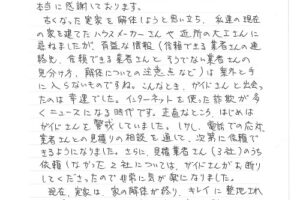 本当に感謝しております。
古くなった実家を解体しようと思い立ち、私達の現在
の家を建てたハウスメーカーさんや近所の大工さんに
尋ねましたが、有益な情報（信頼できる業者さんの連
絡先、信頼できる業者さんとそうでない業者さんの
見分け方、解体についての注意点など）は案外と手
に入らないものですね。そんなとき、ガイドさんと出会っ
たのは幸運でした。インターネットを使った詐欺が多
くニュースになる時代です。正直なところ、はじめは
ガイドさんを警戒していました。しかし、電話での応対、
業者さんとの見積りの相談を通じて、次第に信頼で
きるようになりました。さらに、見積業者さん（3社）のうち
依頼しなかった2社については、ガイドさんがお断り
してくださったので非常に気が楽になりました。
現在、実家は、家の解体が終り、キレイに整地され